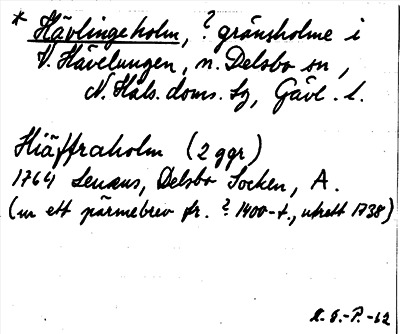 * Hävlingeholm, ? gränsholme i
V. Hävelungen, n. Delsbo sn,
N. Häls. doms. sg, Gävl. l.
Hiäffraholm (2 ggr)
1764 Lenæus, Delsbo Socken, A.
(ur ett pärmebrev fr. ? 1400-t., utrett 1738)
-P.-62